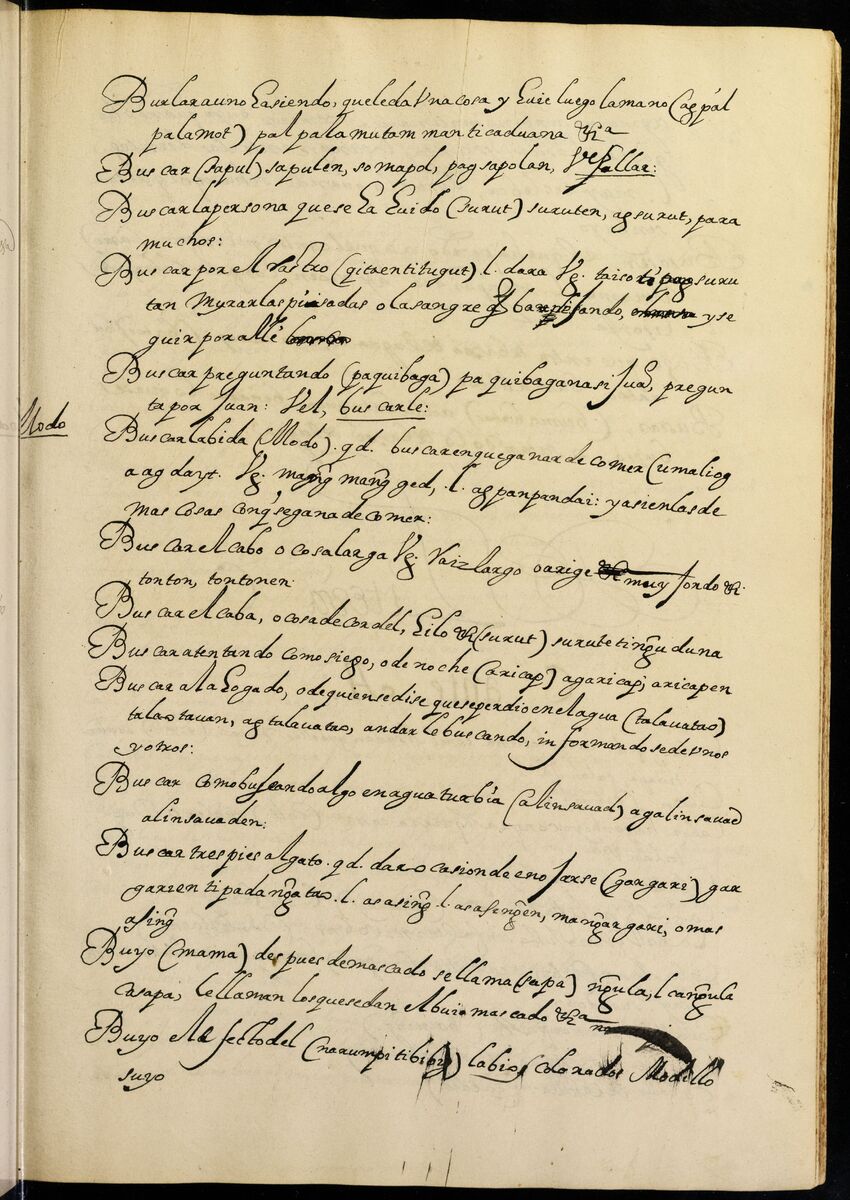 Burlar a uno Hasiendo, que le da Vna cosa y Huie luego la mano (ag pal
palamot) pal pala mutam man ti caduana &ra
Buscar (sapul) sapulen, somapol, pag sapolan, Vel Hallar:
Buscar la persona que se Ha Huido (surut) suruten, ag surut, para
muchos:
Buscar por el rastro (qitaen ti tugut) l. dara Vg. taiso ti suru
tan Myrar las pisadas o la sangre q ba dejando, y se
guir por alli
Buscar preguntando (paquibaga) pa quibagana si Juo, pregun
ta por Juan: Vel, buscarle:
Modo
Buscar la bida (Modo). qd. buscar en que ganar de comer (umaliog
a ag dayt. Vg. mangged, .l. ag panpandai: y asi en las de
mas cosas conq se gana de comer:
Buscar el cabo o cosa larga Vg. raiz largo o arige muy fondo &.
tonton, tontonen:
Buscar el caba, o cosa de cordel, Hilo &(surut) surute ti ngudu na
Buscar atentando como siego, o de noche (aricap) agaricap; aricapen
Buscar al aHogado, o de quien se dise que se perdio en el agua (talauatao)
talaotauan, ag talauatao, andar le buscando, informando se de Vnos
y otros:
Buscar como buscando algo en agua turbia (alinsauad) agalinsauad
alinsauaden:
Buscar tres pies al gato. qd. dar ocasion de enojarse (gargari) gar
garien ti pada ngatao .l. asasing .l. asasingen, mangargari, o mas
asing
Buyo (mama) despues de mascado se llama (sapa) ngula, l cangula
casapa, le llaman los que se dan el buio mascado &ra
Buyo el efecto del (narumpi ti bibig) labios colorados Modillo
suyo